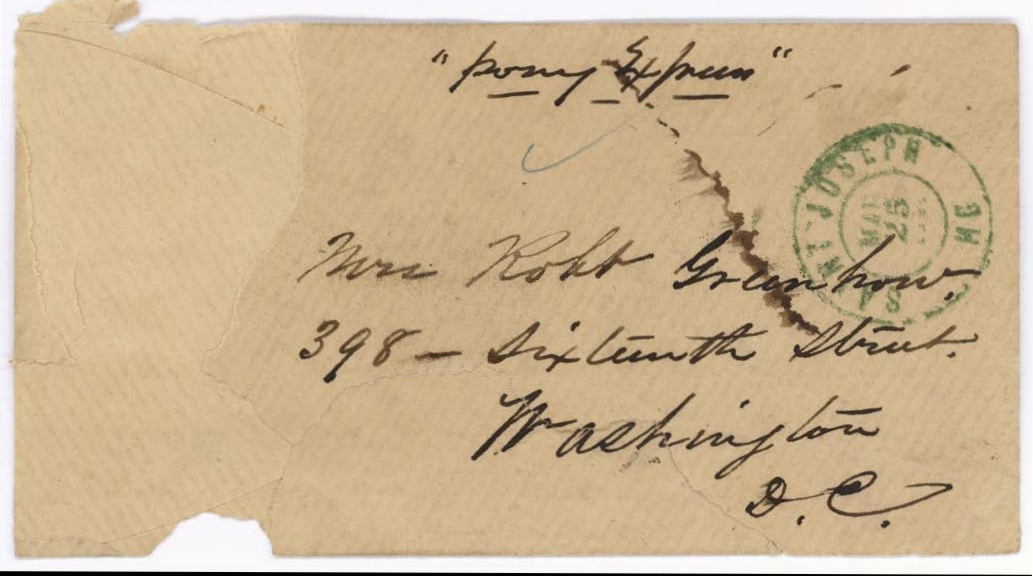 "Pony Express"
SAINT JOSEPH MO
MAR
25
Mrs Robt Greenhow.
398 – Sixteenth Street.
Washington
D.C.